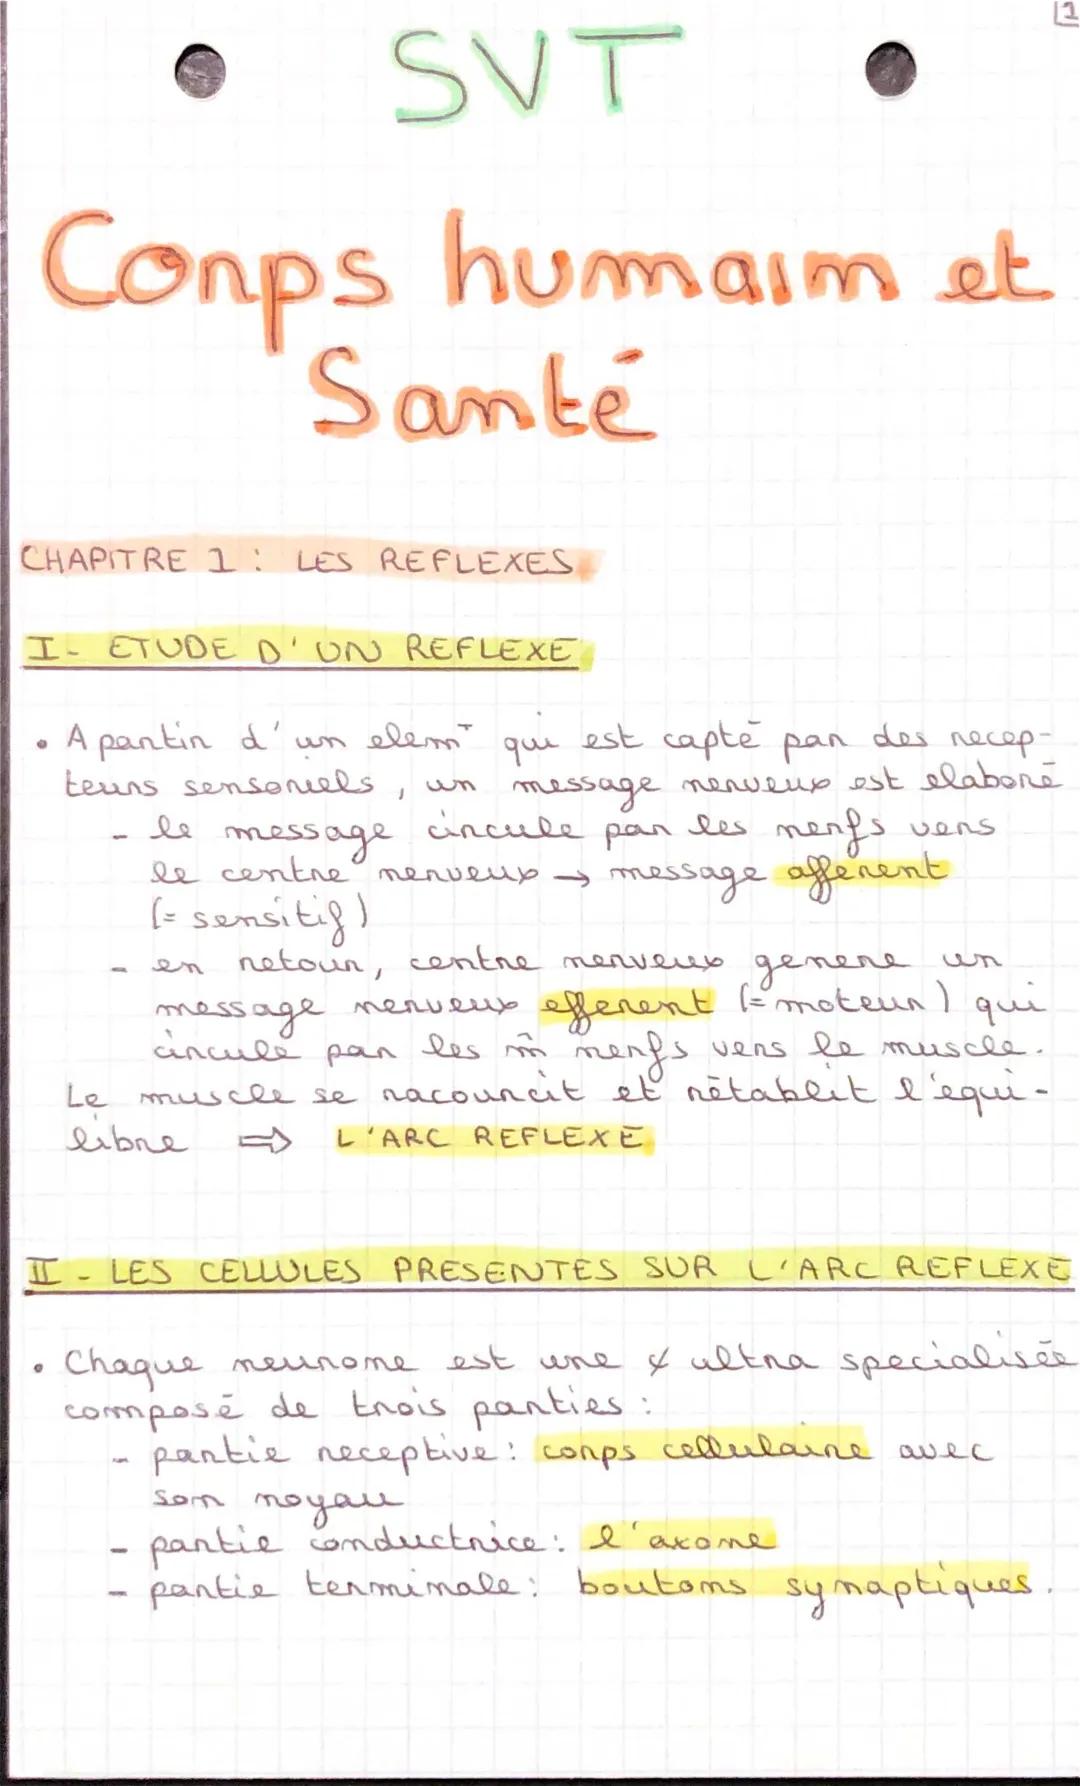 1
SVT
Corps humain et
Santé
CHAPITRE 1 : LES REFLEXES
I - ETUDE D'UN REFLEXE
• A partir d'un elemt qui est capté par des recep-
teurs sensoriels, un message nerveux est elaboré
- le message circule par les nerfs vers
le centre nerveux → message afferent
(= sensitif)
- en retour, centre nerveux genere un
message nerveux efferent (= moteur) qui
circule par les m̂ nerfs vers le muscle.
Le muscle se racourcit et rétablit l'equi-
libre ⇒ L'ARC REFLEXE
II - LES CELLULES PRESENTES SUR L'ARC REFLEXE
• Chaque neurone est une ¢ ultra specialisée
composé de trois parties :
- partie receptive : corps cellulaire avec
son noyau
- partie conductrice : l'axone
- partie terminale : boutons synaptiques.